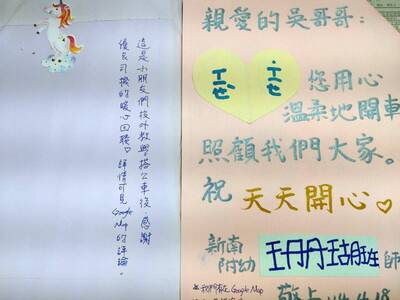 這是小朋友們校外教學搭公車後,感謝
優良司機的暖心回饋♡詳情可見Google Map的評論。
親愛的吳哥哥:
ㄒㄧㄝˋ ˙ㄒㄧㄝ 您用心
溫柔地開車
照顧我們大家。
祝 天天開心♡
新南
附幼 珊瑚班 師
敬上 114.4.18
*我們有在Google Map